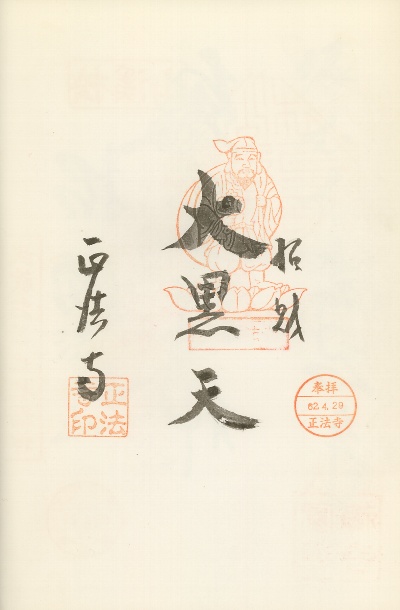 招財
大黒天
正法寺
奉拝
62.4.29
正法寺
正法寺印